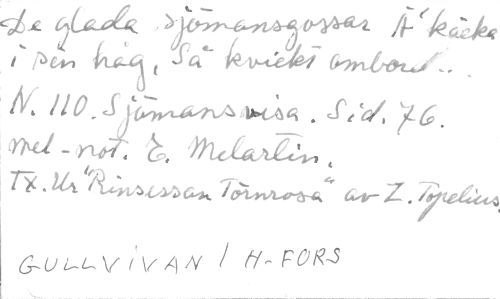 De glada sjömansgossar Ä' käcka
i sen håg, Så kvickt ombord...
N. 110. Sjömansvisa. Sid. 76.
mel-not. E. Melartin.
Tx. Ur "Rinsessan Törnrosa" av Z. Topelius.
GULLVIVAN / H-FORS